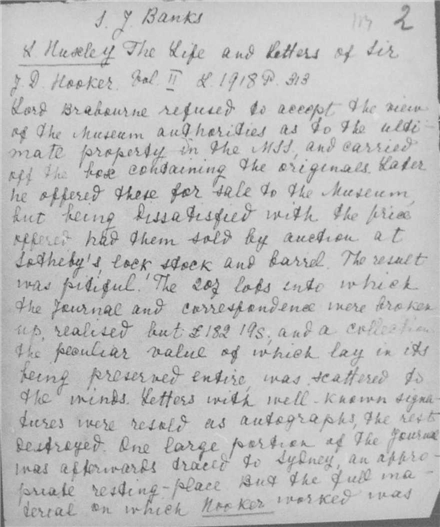 S. J Banks 2
L Huxley The Life and Letters of Sir
J. D. Hooker. Vol. II L 1918 P. 313
Lord Brabourne refused to accept the view
of the Museum authorities as to the ulti-
mate property in the MSS, and carried
off the box containing the originals. Later
he offered these for sale to the Museum,
but being dissatisfied with the price
offered had them sold by auction at
Sotheby's, lock stock and barrel. The result
was pitiful. The 207 lots into which
the Journal and correspondence were broken
up, realised but £182 19s, and a collection
the peculiar value of which lay in its
being preserved entire, was scattered to
the winds. Letters with well-known signa-
tures were resold as autographs, the rest
destroyed. One large portion of the Journal
was afterwards traced to Sydney, an appro-
priate resting-place But the full ma-
terial on which Hooker worked was